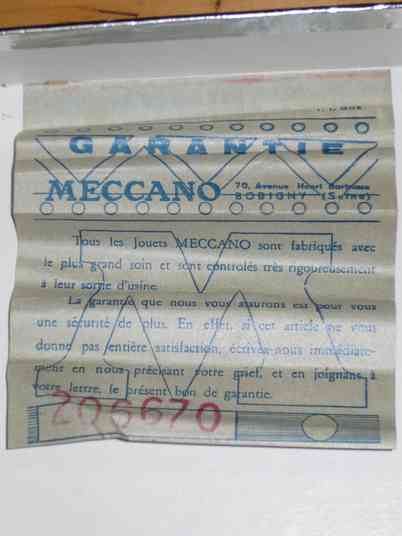 GARANTIE
MECCANO 70, Avenue Henri Barbusse
BOBIGNY (Seine)
Tous les Jouets MECCANO sont fabriqués avec
le plus grand soin et sont contrôlés très rigoureusement
à leur sortie d'usine.
La garantie que nous vous assurons est pour vous
une sécurité de plus. En effet, si cet article ne vous
donne pas entière satisfaction, écrivez-nous immédiate-
ment en nous précisant votre grief, et en joignant à
votre lettre, le présent bon de garantie.
206670